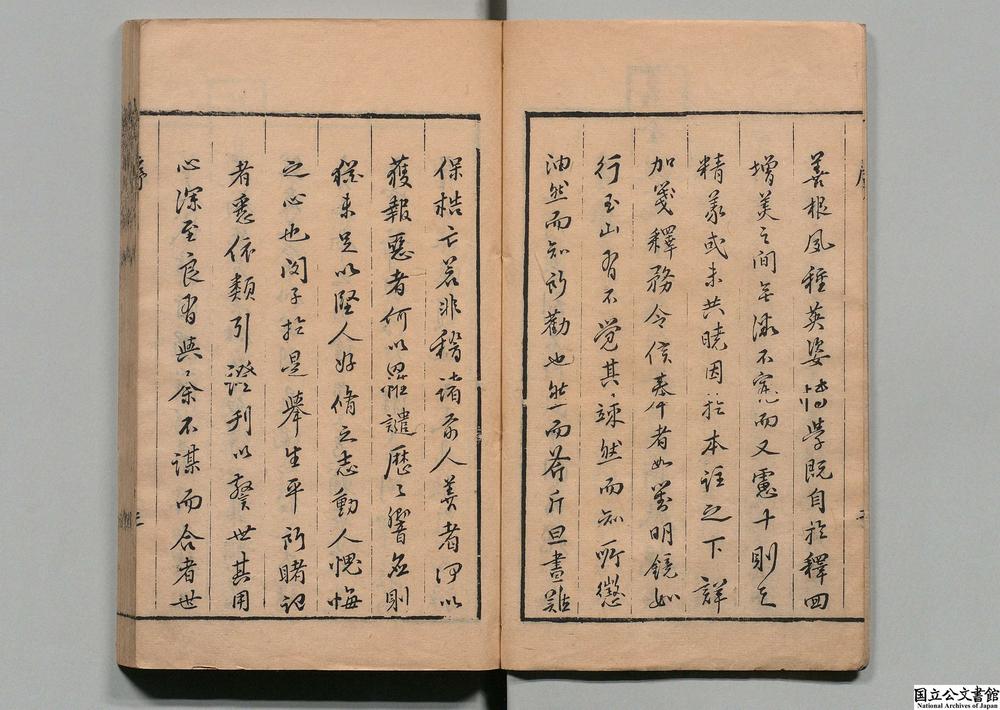 善根夙種英姿博學既自於釋回
增美之間無微不完而又慮十則之
精義或未共曉因於本註之下詳
加箋釋務令信奉者如對明鏡如
行玉山有不覺其竦然而知所懲
油然而知所勸也然而斧斤旦晝難
保梏亡若非稽諸前人善者何以
獲報惡者何以罹譴歷歷響應則
從來足以堅人好脩之志動人愧悔
之心也閔子於是舉生平所睹記
者悉依類引證刊以警世其用
心深至良有與余不謀而合者世
序
三
国立公文書館
National Archives of Japan